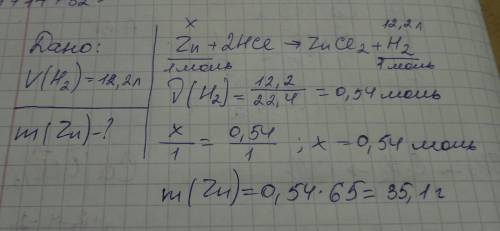 Дано:
V(H₂)=12,2л
m(Zn)-?
x 12,2л
Zn+2HCl→ZnCl₂+H₂
1моль 1моль
ν(H₂)=12,2/22,4=0,54моль
x/1=0,54/1; x=0,54моль
m(Zn)=0,54·65=35,1г